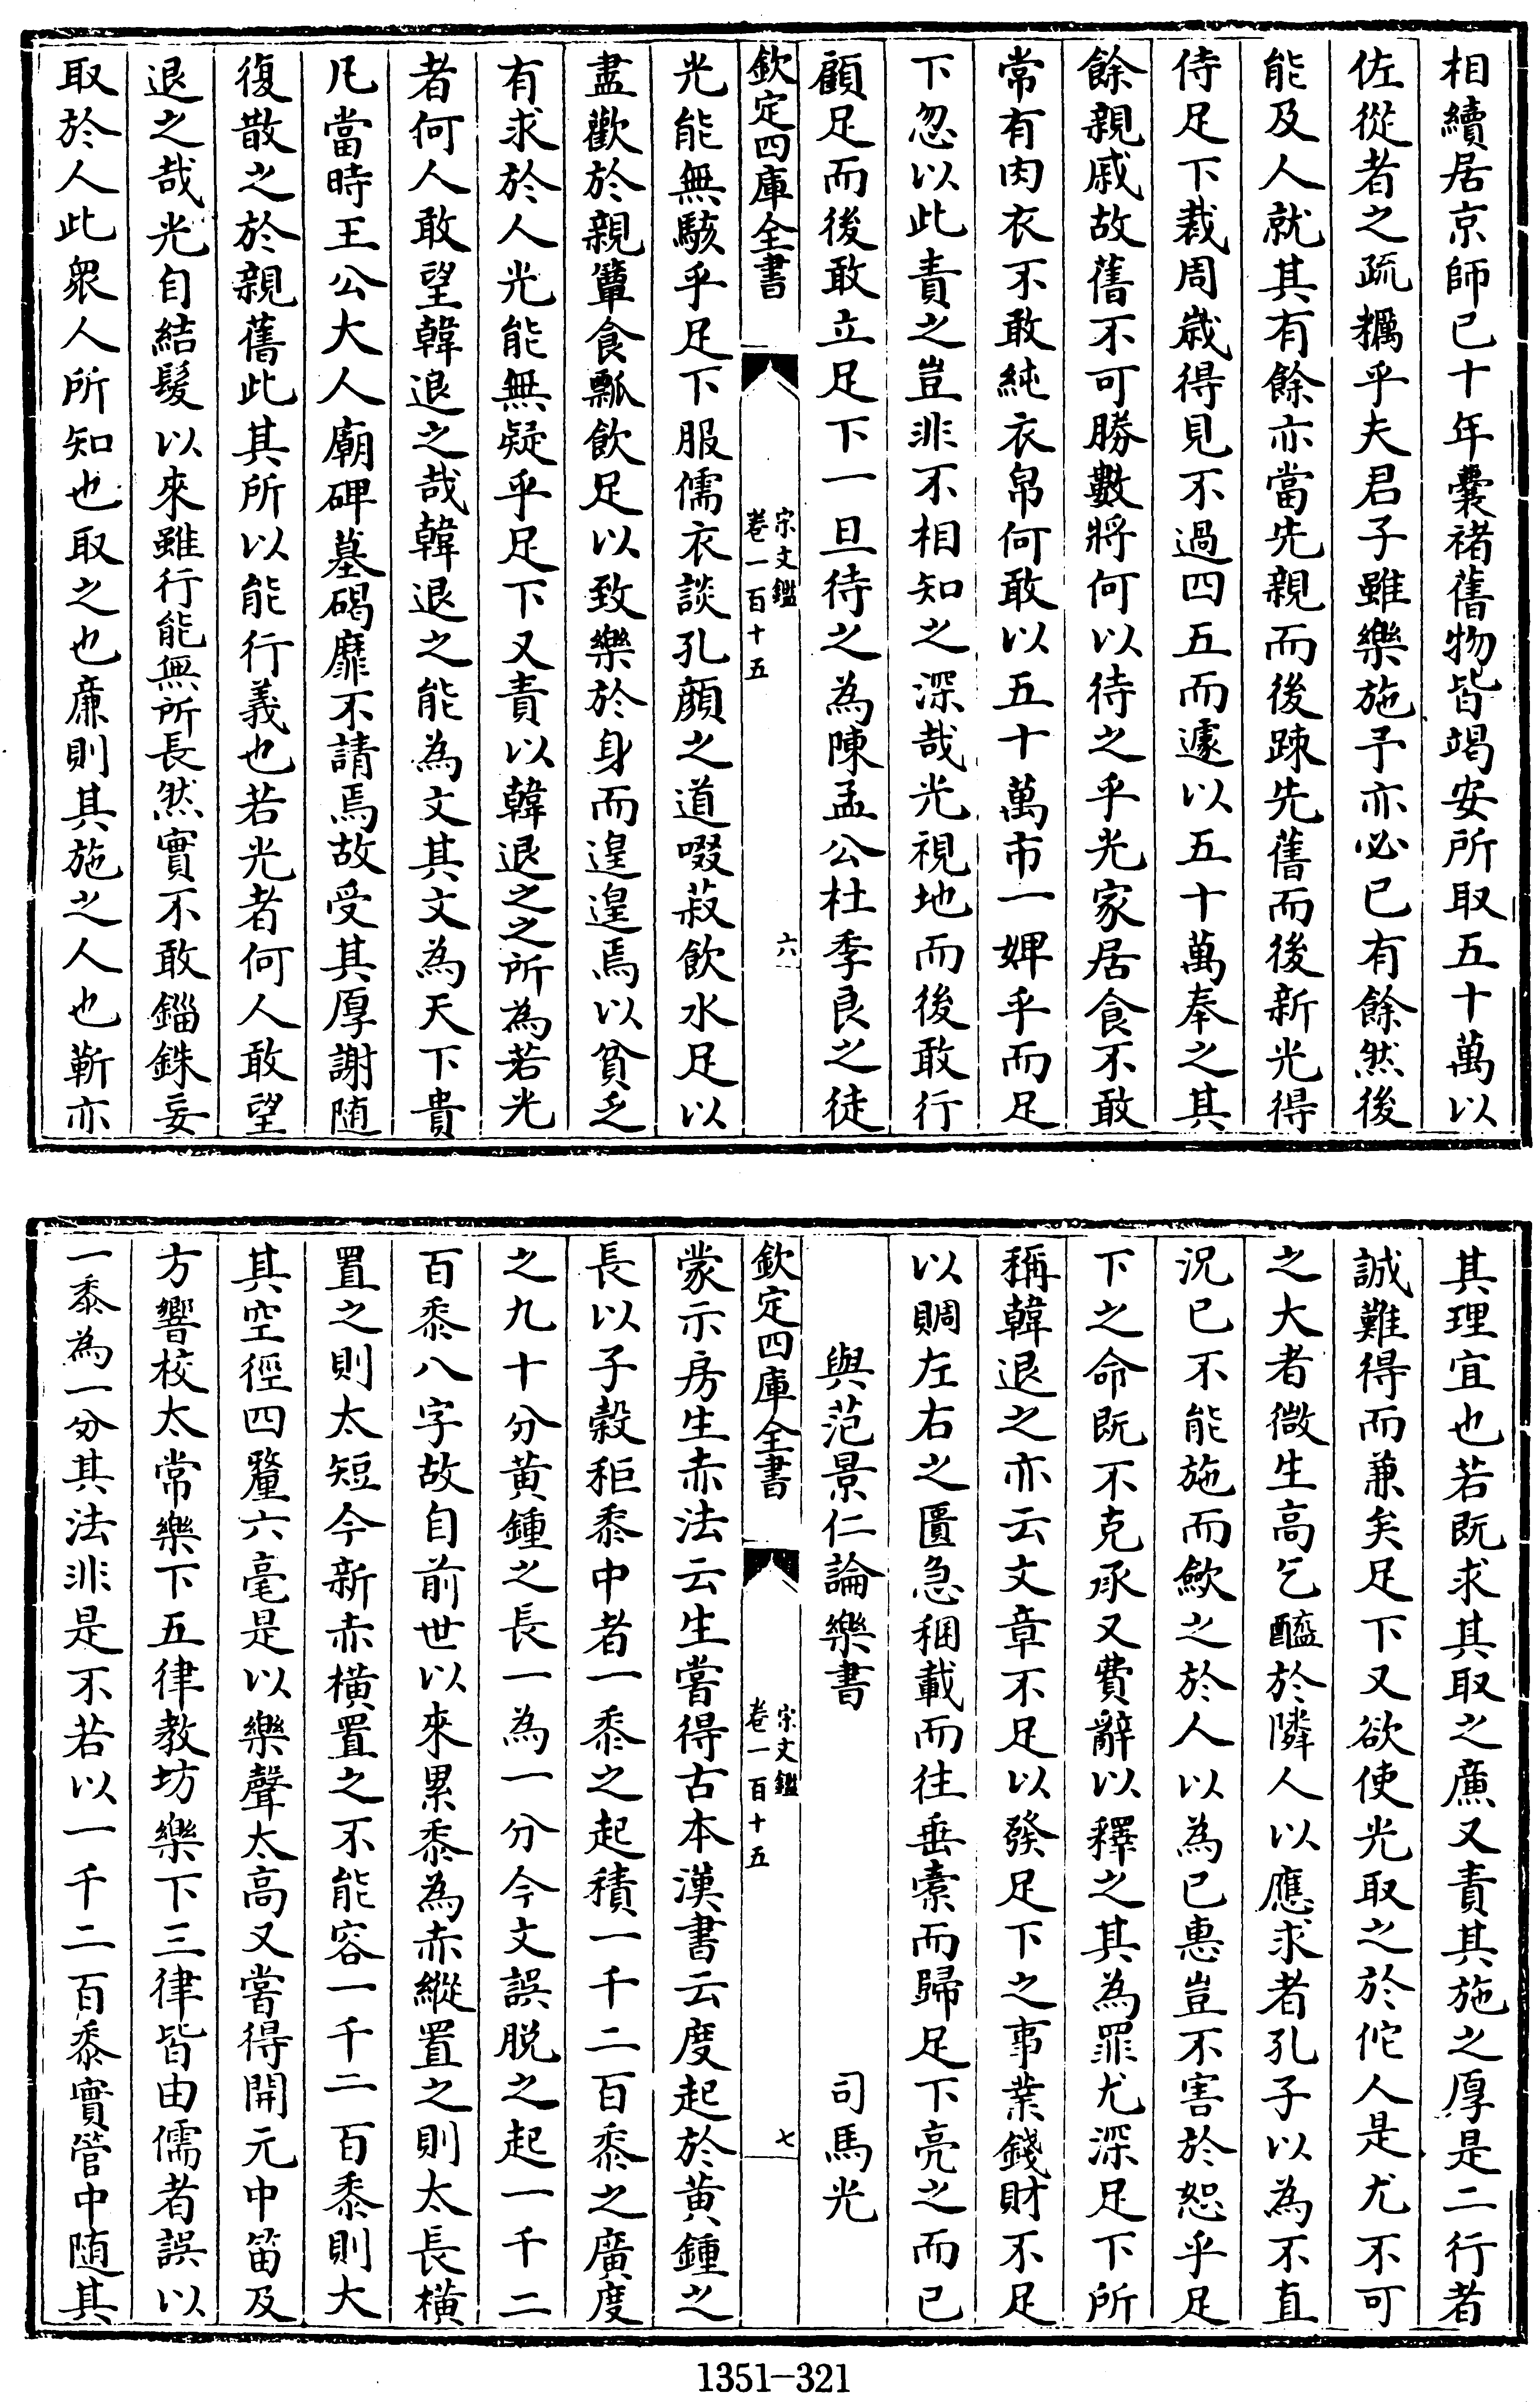 相續居京師已十年囊褚舊物皆竭安所取五十萬以
佐從者之疏糲乎夫君子雖樂施予亦必已有餘然後
能及人就其有餘亦當先親而後踈先舊而後新光得
侍足下裁周歳得見不過四五而遽以五十萬奉之其
餘親戚故舊不可勝數將何以待之乎光家居食不敢
常有肉衣不敢純衣帛何敢以五十萬市一婢乎而足
下忽以此責之豈非不相知之深哉光視地而後敢行
顧足而後敢立足下一旦待之為陳孟公杜季良之徒
欽定四庫全書
宋文鑑
卷一百十五
六
光能無駭乎足下服儒衣談孔顔之道啜菽飲水足以
盡歡於親簞食瓢飲足以致樂於身而遑遑焉以貧乏
有求於人光能無疑乎足下又責以韓退之之所為若光
者何人敢望韓退之哉韓退之能為文其文為天下貴
凡當時王公大人廟碑墓碣靡不請焉故受其厚謝随
復散之於親舊此其所以能行義也若光者何人敢望
退之哉光自結髮以來雖行能無所長然實不敢錙銖妄
取於人此衆人所知也取之也亷則其施之人也靳亦
其理宜也若既求其取之亷又責其施之厚是二行者
誠難得而兼矣足下又欲使光取之於佗人是尤不可
之大者微生高乞醯於隣人以應求者孔子以為不直
況已不能施而歛之於人以為已惠豈不害於恕乎足
下之命既不克承又費辭以釋之其為罪尤深足下所
稱韓退之亦云文章不足以發足下之事業錢財不足
以賙左右之匱急稇載而往垂槖而歸足下亮之而已
與范景仁論樂書　司馬光
欽定四庫全書
宋文鑑
卷一百十五
七
蒙示房生赤法云生嘗得古本漢書云度起於黄鍾之
長以子穀秬黍中者一黍之起積一千二百黍之廣度
之九十分黄鍾之長一為一分今文誤脱之起一千二
百黍八字故自前世以來累黍為赤縱置之則太長橫
置之則太短今新赤橫置之不能容一千二百黍則大
其空徑四釐六毫是以樂聲太高又嘗得開元中笛及
方響校太常樂下五律教坊樂下三律皆由儒者誤以
一黍為一分其法非是不若以一千二百黍實管中随其
1351-321